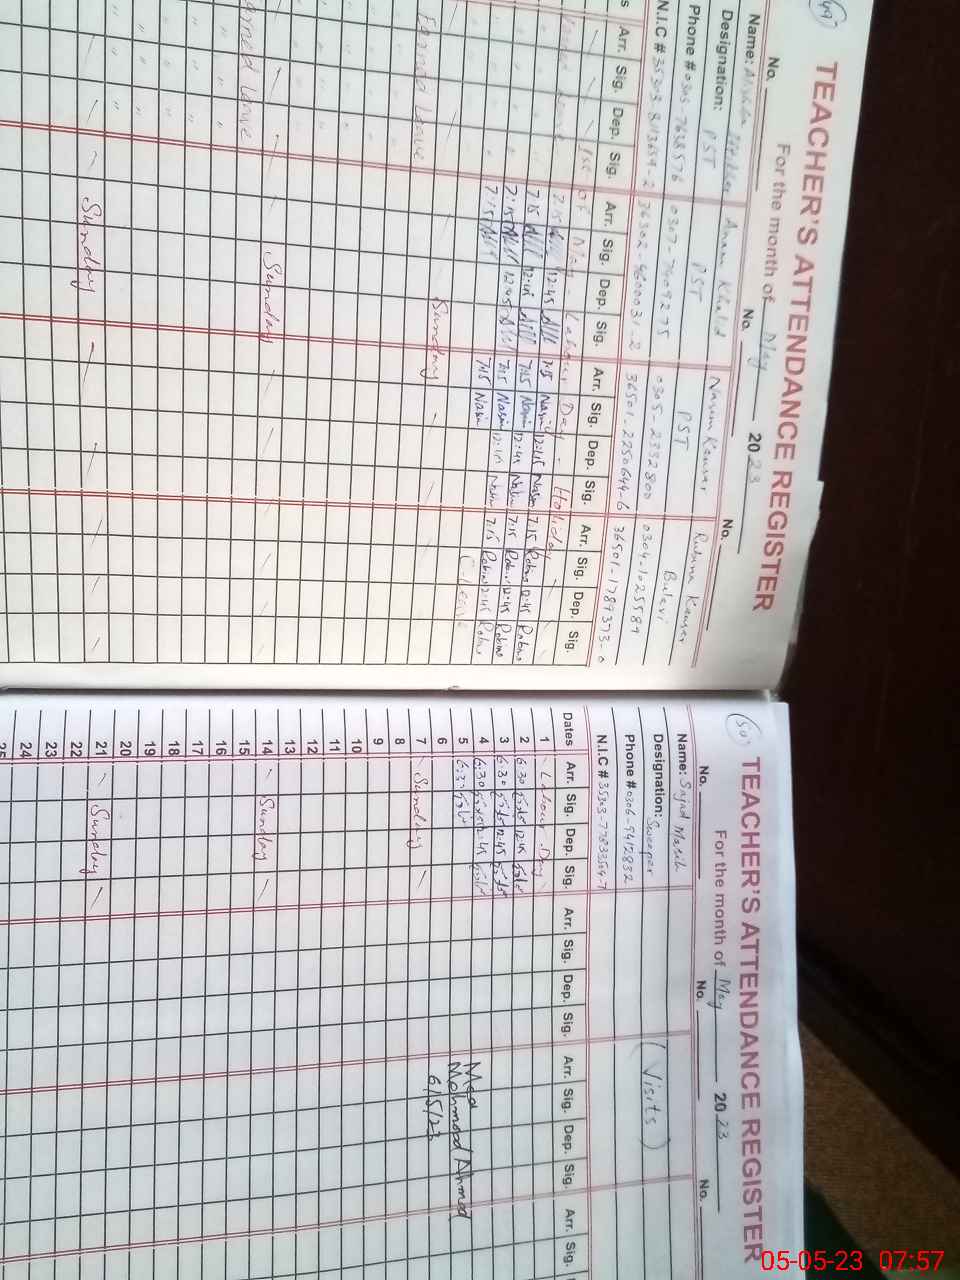 49
TEACHER'S ATTENDANCE REGISTER
For the month of May 2023
No. No. No.
Name: Anam Khalid Nasim Kausar Rubina Kausar
Designation: PST PST PST
Phone # 0305-7638576 0307-7609275 0305-2332800 0304-1025589
N.I.C # 35303-8113659-2 36302-4600031-2 36501-2250644-6 36501-1789373-0
Arr. Sig. Dep. Sig. Arr. Sig. Dep. Sig. Arr. Sig. Dep. Sig. Arr. Sig. Dep. Sig.
1st of May - Labour Day - Holiday
7:15 12:45 7:15 Nasim 12:45 Nasim 7:15 Robina 12:45 Robina
7:15 12:45 7:15 Nasim 12:45 Nasim 7:15 Robina 12:45 Robina
7:15 12:45 7:15 Nasim 12:45 Nasim 7:15 Robina 12:45 Robina
7:15 7:15 Nasim 7:15 Robina 12:45 Robina
C-leave
Sunday
Earned Leave
Sunday
Earned Leave
Sunday
50
TEACHER'S ATTENDANCE REGISTER
For the month of May 2023
No. No. No.
Name: Sajad Masih
Designation: Sweeper (Visits)
Phone # 0306-9412832
N.I.C # 35303-7783564-7
Dates Arr. Sig. Dep. Sig. Arr. Sig. Dep. Sig. Arr. Sig. Dep. Sig. Arr. Sig.
1 Labour Day
2 6:30 12:45
3 6:30 12:45
4 6:30 12:45
5 6:30 Mea
6 Mehmood Ahmed
7 Sunday 6/5/23
8
9
10
11
12
13
14 Sunday
15
16
17
18
19
20
21 Sunday
22
23
24
25
05-05-23 07:57